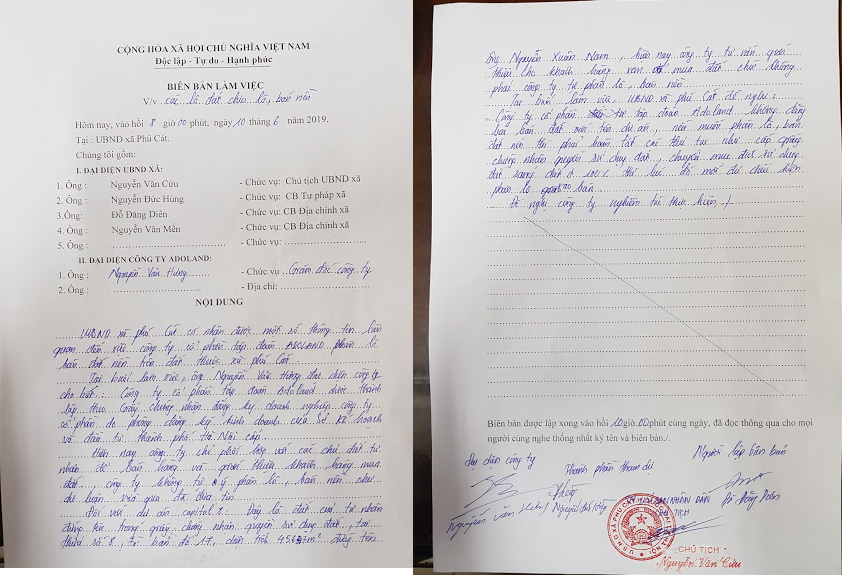 CỘNG HÒA XÃ HỘI CHỦ NGHĨA VIỆT NAM
Độc lập - Tự do - Hạnh phúc
BIÊN BẢN LÀM VIỆC
V/v các lô đất chia lô, bán nền
Hôm nay, vào hồi 8 giờ 00 phút, ngày 10 tháng 6 năm 2019.
Tại : UBND xã Phú Cát.
Chúng tôi gồm:
I. ĐẠI DIỆN UBND XÃ:
1. Ông : Nguyễn Văn Cửu - Chức vụ: Chủ tịch UBND xã
2. Ông : Nguyễn Đức Hùng - Chức vụ: CB Tư pháp xã
3.Ông: Đỗ Đăng Diên - Chức vụ: CB Địa chính xã
4. Ông : Nguyễn Văn Mến - Chức vụ: CB Địa chính xã
5. Ông : - Chức vụ:
II. ĐẠI DIỆN CÔNG TY ADOLAND:
1. Ông : Nguyễn Văn - Chức vụ Giám đốc công ty
2. Ông : - Địa chỉ:
NỘI DUNG
UBND xã phú Cát có nhận được một số thông tin liên
quan đến việc công ty cổ phần tập đoàn ADOLAND phân lô
bán đất nền trên đất thuộc xã phú Cát.
Tại buổi làm việc, ông Nguyễn Văn đại diện công ty
cho biết: Công ty cổ phần tập đoàn Adoland được thành
lập theo Giấy chứng nhận đăng ký doanh nghiệp công ty
cổ phần do phòng đăng ký kinh doanh của Sở kế hoạch
và đầu tư thành phố Hà Nội cấp.
Hiện nay công ty chỉ phối hợp với các chủ đất tư
nhân để bán hàng và giới thiệu khách hàng mua
đất, công ty không tự ý phân lô, bán nền như
dư luận vừa qua đã đưa tin.
Đối với dự án capital 8: Đây là đất của tư nhân
đứng tên trong giấy chứng nhận quyền sử dụng đất, tại
thửa số 8, tờ bản đồ 17, diện tích m² đứng tên
ông Nguyễn Xuân Nam, hiện nay công ty tư vấn giới
thiệu cho khách hàng xem mua đất chứ không
phải công ty tự phân lô, bán nền.
Tại buổi làm việc, UBND xã phú Cát đề nghị:
Công ty cổ phần tập đoàn Adoland không được
bán đất với tên dự án, nếu muốn phân lô, bán
đất nền thì phải hoàn tất các thủ tục như cấp giấy
chứng nhận quyền sử dụng đất, chuyển mục đích sử dụng
đất sang đất ở 100% thì lúc đó mới được thực hiện
phân lô bán.
Đề nghị công ty nghiêm túc thực hiện./.
Biên bản được lập xong vào hồi 10 giờ 00 phút cùng ngày, đã đọc thông qua cho mọi
người cùng nghe thống nhất ký tên và biên bản./.
Đại diện công ty
Thành phần tham dự
Người lập văn bản
CHỦ TỊCH
Nguyễn Văn Cửu